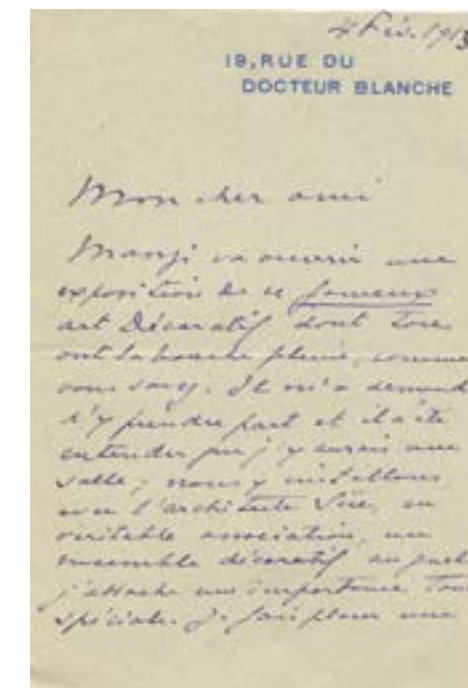 4 Fév. 1913
19, RUE DU
DOCTEUR BLANCHE
Mon cher ami
Manzi va ouvrir une
exposition de ce fameux
art Décoratif dont tous
ont la bouche pleine, comme
vous savez. Il m'a demandé
d'y prendre part et il a été
entendu que j'y aurais une
salle; nous y installons
avec l'architecte Süe, en
véritable association, un
ensemble décoratif auquel
j'attache une importance tout
spéciale. Je fais pour une